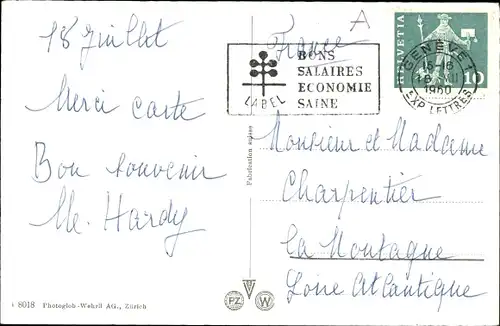 18 Juillet
Merci carte
Bon souvenir
Me. Hardy
i 8018 Photoglob-Wehrli AG., Zürich
Fabrication suisse
PZ W
A
France
LABEL
BONS
SALAIRES
ECONOMIE
SAINE
HELVETIA
10
GENÈVE 1
1960
EXP. LETTRES
Monsieur et Madame
Charpentier
La Montagne
Loire Atlantique